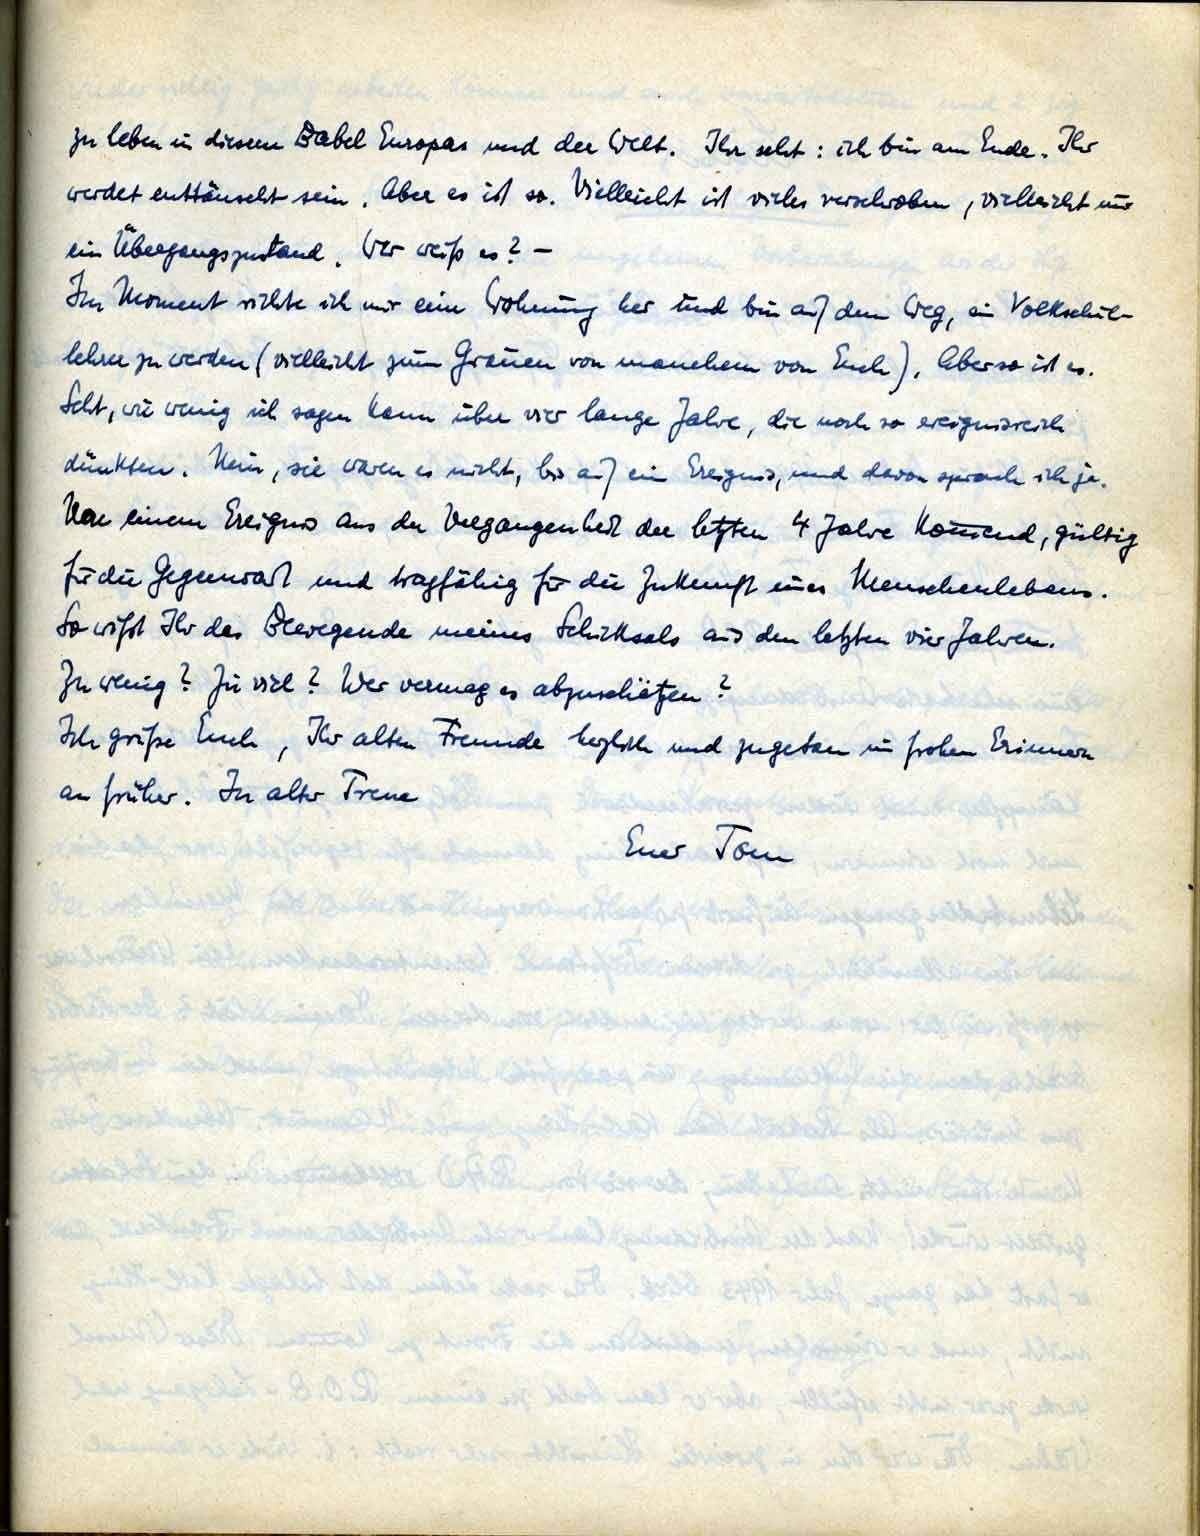 zu leben in diesem Babel Europas und der Welt. Ihr seht: ich bin am Ende. Ihr
werdet enttäuscht sein. Aber es ist so. Vielleicht ist vieles verschroben, vielleicht nur
ein Übergangszustand. Wer weiß es? –
Im Moment richte ich mir eine Wohnung her und bin auf dem Weg, ein Volkschul-
lehrer zu werden (vielleicht zum Grauen von manchem von Euch). Aber so ist es.
Seht, wie wenig ich sagen kann über vier lange Jahre, die noch so ereignisreich
dünkten. Nein, sie waren es nicht, bis auf ein Ereignis, und davon sprach ich ja.
Von einem Ereignis aus der Vergangenheit der letzten 4 Jahre kom̅end, gültig
für die Gegenwart und tragfähig für die Zukunft eines Menschenlebens.
So wißt Ihr das Bewegende meines Schicksals aus den letzten vier Jahren.
Zu wenig? Zu viel? Wer vermag es abzuschätzen?
Ich grüße Euch, Ihr alten Freunde herzlich und zugetan im frohen Erinnern
an früher. In alter Treue
Euer Tom